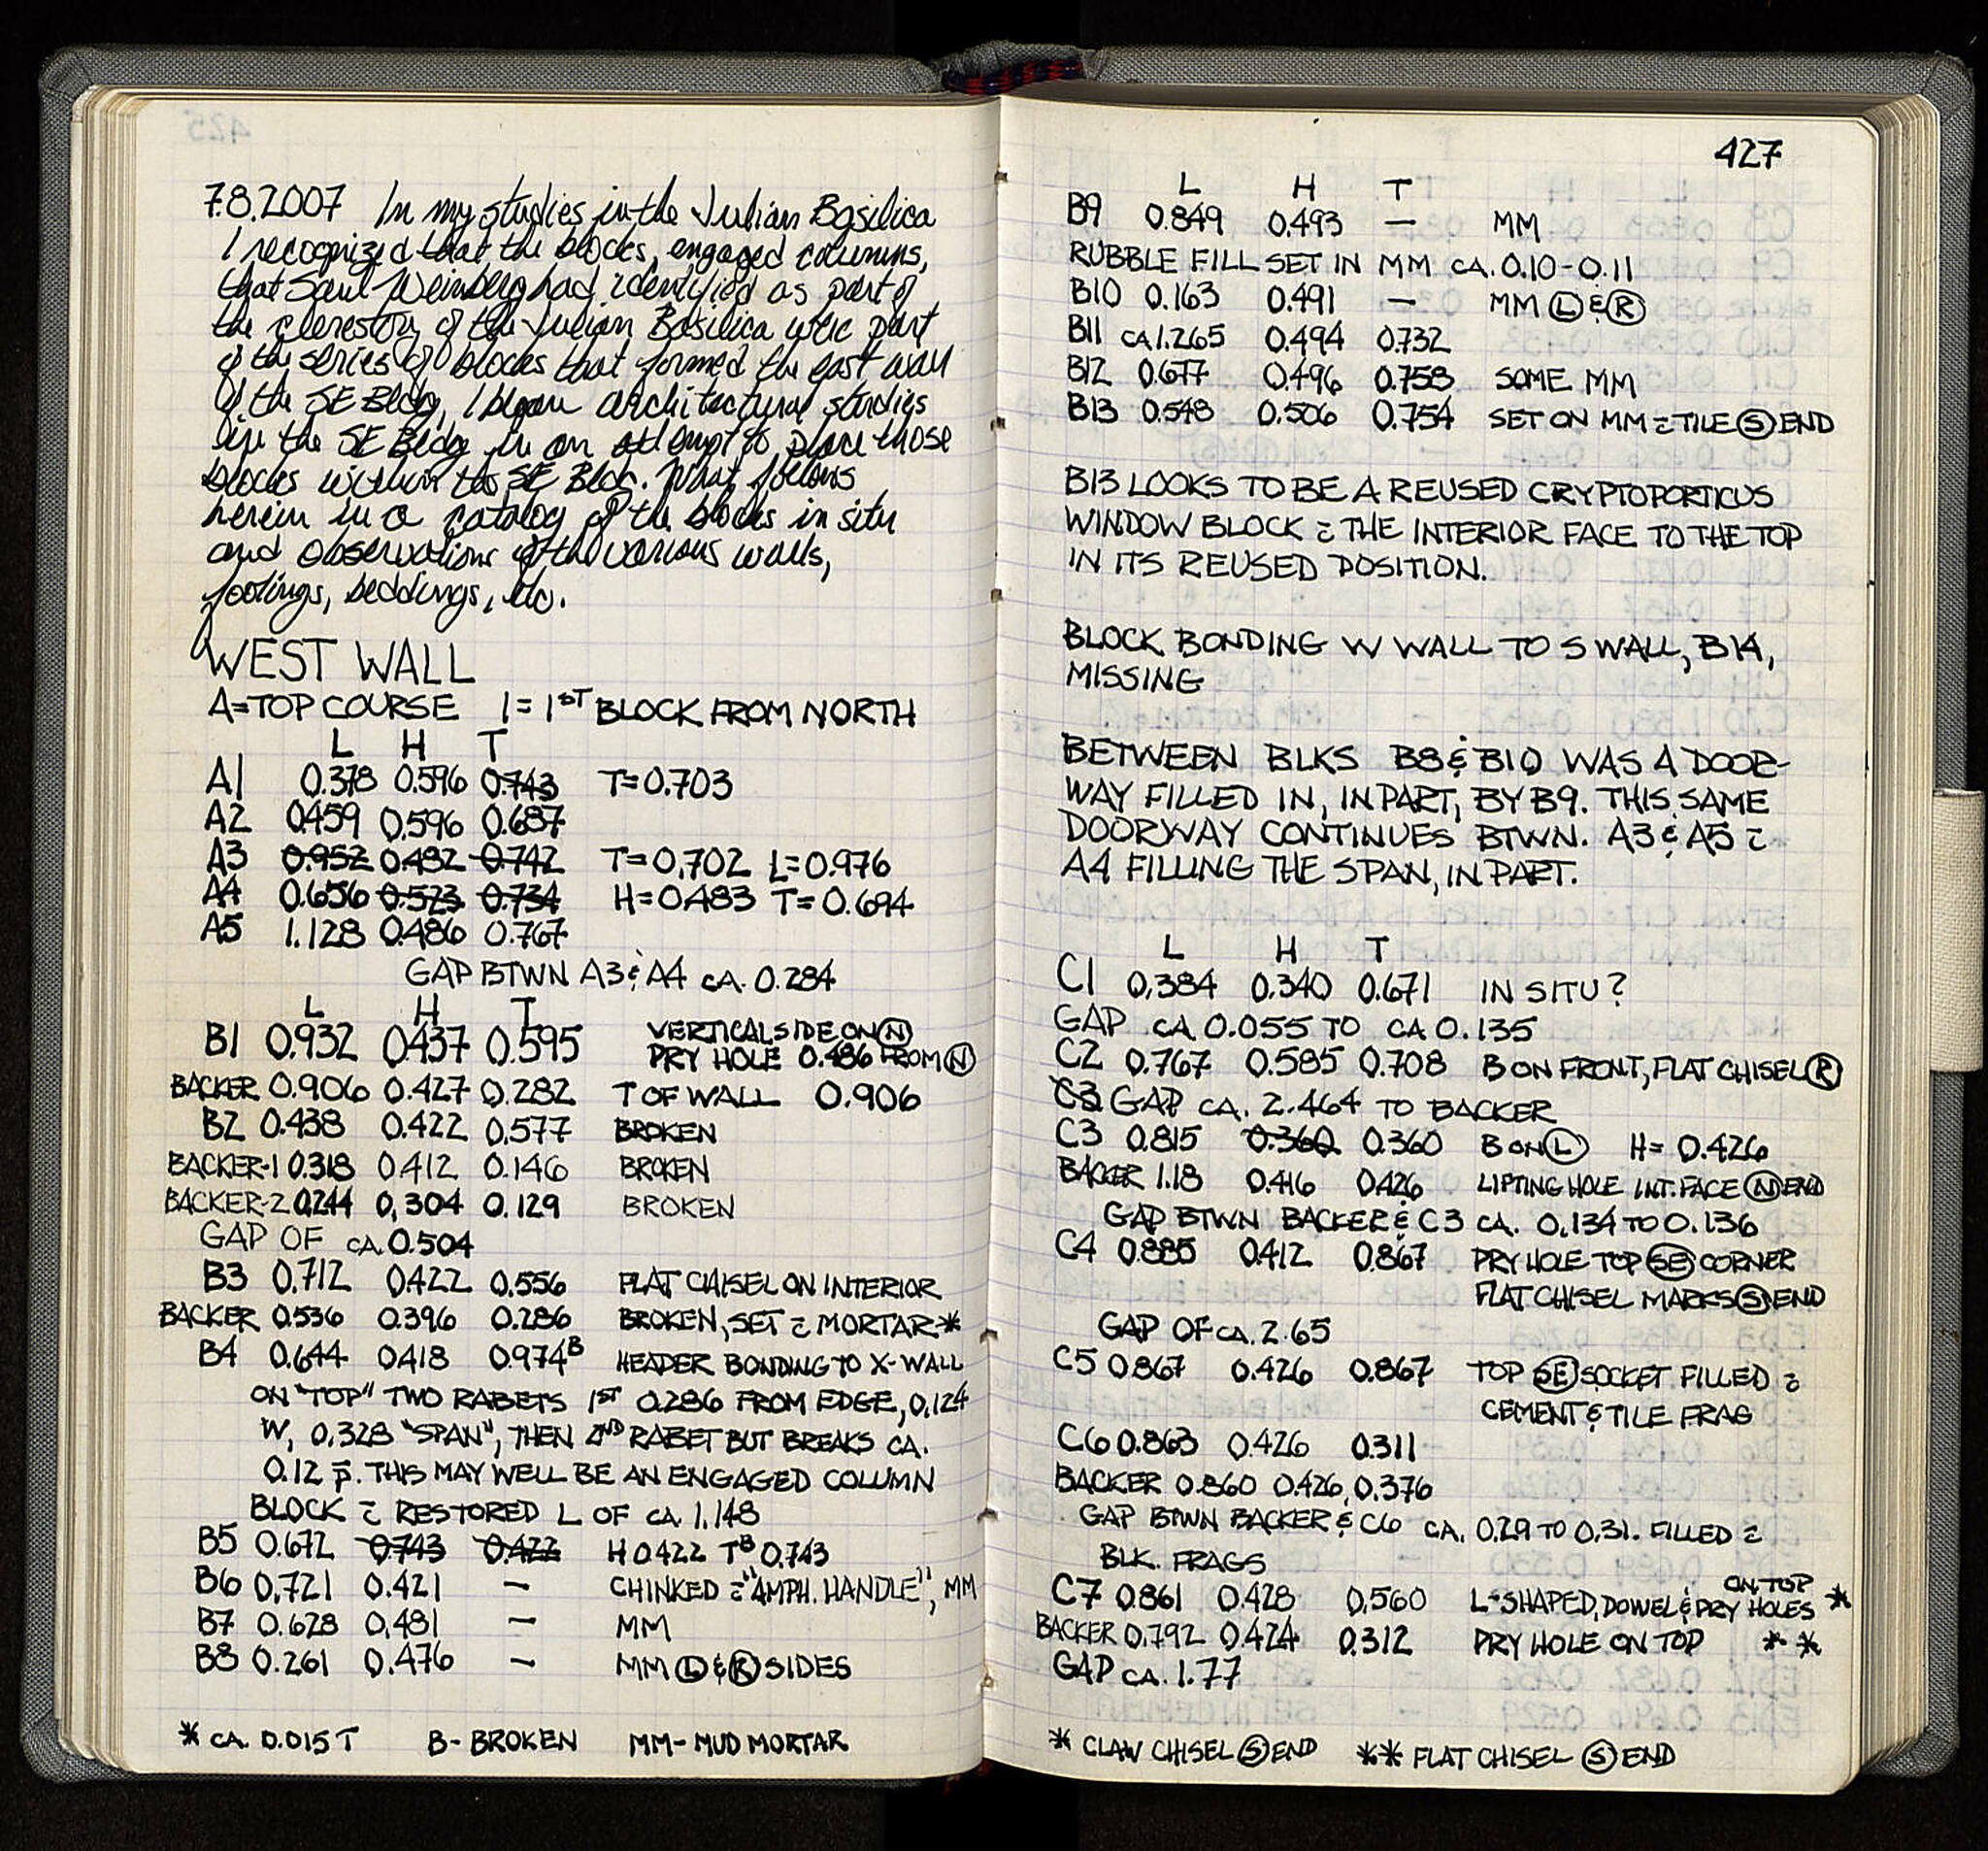 7.8.2007 In my studies in the Julian Basilica
I recognized that the blocks, engaged columns,
that Saul Weinberg had identified as part of
the clerestory of the Julian Basilica were part
of the series of blocks that formed the east wall
of the SE Bldg, I began architectural studies
in the SE Bldg in an attempt to place those
blocks within the SE Bldg. What follows
herein is a catalog of the blocks in situ
and observations of the various walls,
footings, beddings, etc.
WEST WALL
A=TOP COURSE 1=1ST BLOCK FROM NORTH
L H T
A1 0.378 0.596 0.743 T=0.703
A2 0.459 0.596 0.687
A3 0.952 0.482 0.742 T=0.702 L=0.976
A4 0.656 0.523 0.734 H=0.483 T=0.694
A5 1.128 0.486 0.767
GAP BTWN A3 & A4 CA. 0.284
L H T
B1 0.932 0.437 0.595 VERTICAL SIDE ON Ⓝ
PRY HOLE 0.486 FROM Ⓝ
BACKER 0.906 0.427 0.282 T OF WALL 0.906
B2 0.438 0.422 0.577 BROKEN
BACKER-1 0.318 0.412 0.146 BROKEN
BACKER-2 0.244 0.304 0.129 BROKEN
GAP OF CA. 0.504
B3 0.712 0.422 0.556 FLAT CHISEL ON INTERIOR
BACKER 0.536 0.396 0.286 BROKEN, SET c̄ MORTAR *
B4 0.644 0.418 0.974ᴮ HEADER BONDING TO X-WALL
ON "TOP" TWO RABETS 1ST 0.286 FROM EDGE, 0.124
W, 0.328 "SPAN", THEN 2ND RABET BUT BREAKS CA.
0.12 p̄. THIS MAY WELL BE AN ENGAGED COLUMN
BLOCK c̄ RESTORED L OF CA 1.148
B5 0.672 0.743 0.422 H 0.422 Tᴮ 0.743
B6 0.721 0.421 — CHINKED c̄ "AMPH. HANDLE", MM
B7 0.628 0.481 — MM
B8 0.261 0.476 — MM Ⓛ & Ⓡ SIDES
* CA. 0.015 T B - BROKEN MM - MUD MORTAR
427
L H T
B9 0.849 0.493 — MM
RUBBLE FILL SET IN MM CA. 0.10-0.11
B10 0.163 0.491 — MM Ⓛ & Ⓡ
B11 CA 1.265 0.494 0.732
B12 0.677 0.496 0.758 SOME MM
B13 0.548 0.506 0.754 SET ON MM c̄ TILE Ⓢ END
B13 LOOKS TO BE A REUSED CRYPTOPORTICUS
WINDOW BLOCK c̄ THE INTERIOR FACE TO THE TOP
IN ITS REUSED POSITION.
BLOCK BONDING W WALL TO S WALL, B14,
MISSING
BETWEEN BLKS B8 & B10 WAS A DOOR-
WAY FILLED IN, IN PART, BY B9. THIS SAME
DOORWAY CONTINUES BTWN. A3 & A5 c̄
A4 FILLING THE SPAN, IN PART.
L H T
C1 0.384 0.340 0.671 IN SITU?
GAP CA 0.055 TO CA 0.135
C2 0.767 0.585 0.708 B ON FRONT, FLAT CHISEL Ⓡ
C3 GAP CA. 2.464 TO BACKER
C3 0.815 0.360 0.360 B ON Ⓛ H= 0.426
BACKER 1.18 0.416 0.426 LIFTING HOLE INT. FACE Ⓝ END
GAP BTWN BACKER & C3 CA. 0.134 TO 0.136
C4 0.885 0.412 0.867 PRY HOLE TOP (SE) CORNER
FLAT CHISEL MARKS Ⓢ END
GAP OF CA. 2.65
C5 0.867 0.426 0.867 TOP (SE) SOCKET FILLED c̄
CEMENT & TILE FRAG
C6 0.863 0.426 0.311
BACKER 0.860 0.426 0.376
GAP BTWN BACKER & C6 CA. 0.29 TO 0.31. FILLED c̄
BLK. FRAGS
C7 0.861 0.428 0.560 L-SHAPED, DOWEL & PRY HOLES ON TOP *
BACKER 0.792 0.424 0.312 PRY HOLE ON TOP **
GAP CA. 1.77
* CLAW CHISEL Ⓢ END ** FLAT CHISEL Ⓢ END